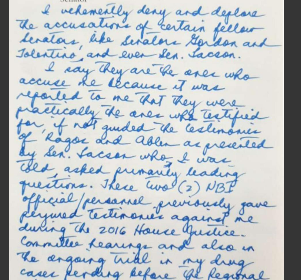 Senator
I vehemently deny and deplore
the accusations of certain fellow
Senators, like Senators Gordon and
Tolentino, and even Sen. Lacson.
I say they are the ones who
accuse me because it was
reported to me that they were
practically the ones who testified
for, if not guided the testimonies
of Ragos and Ablen as presented
by Sen. Lacson who, I was
told, asked primarily leading
questions. These two (2) NBI
official/personnel previously gave
perjured testimonies against me
during the 2016 House Justice
Committee hearings and also in
the ongoing trial in my drug
cases pending before the Regional